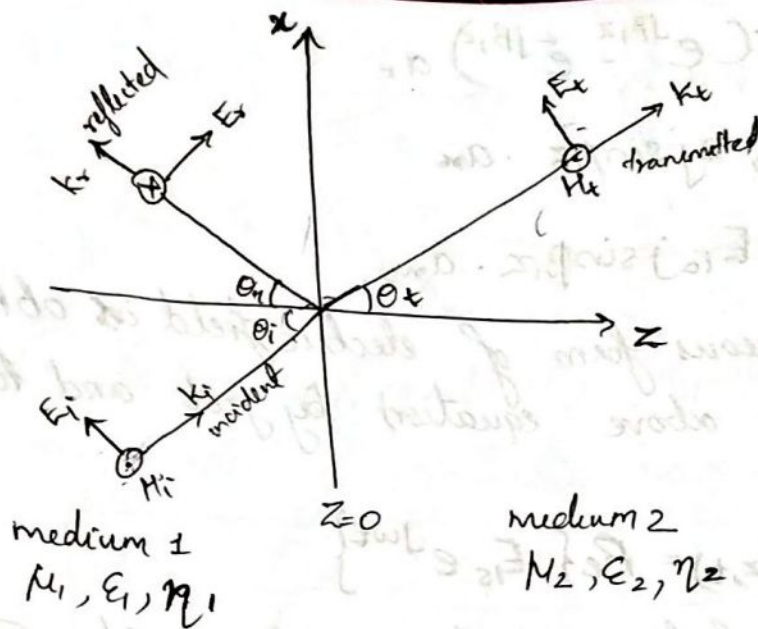 x
reflected
Er
kr
Et
kt
Ht
transmitted
θr
θt
θi
z
Ei
ki
incident
Hi
Z=0
medium 1
μ1, ε1, η1
medium 2
μ2, ε2, η2